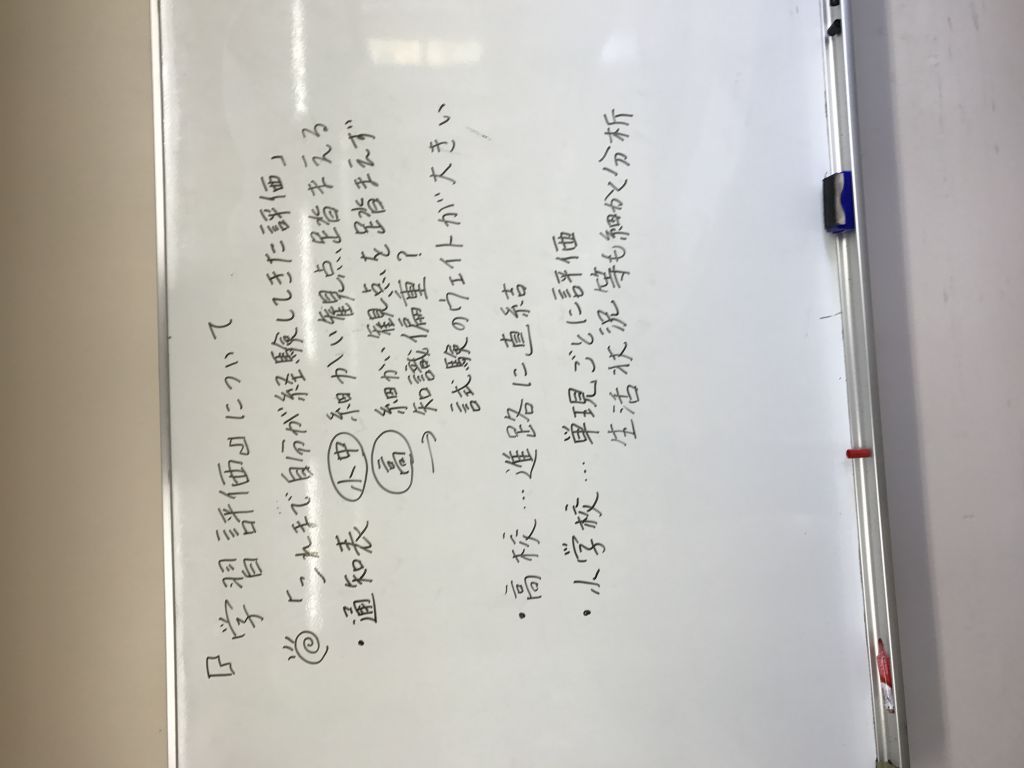 『学習評価』について
「これまで自分が経験してきた評価」
・通知表 小中 細かい観点踏まえる
高 細かい観点を踏まえず
→ 知識偏重?
試験のウェイトが大きい
・高校…進路に直結
・小学校…単現ごとに評価
生活状況等も細かく分析